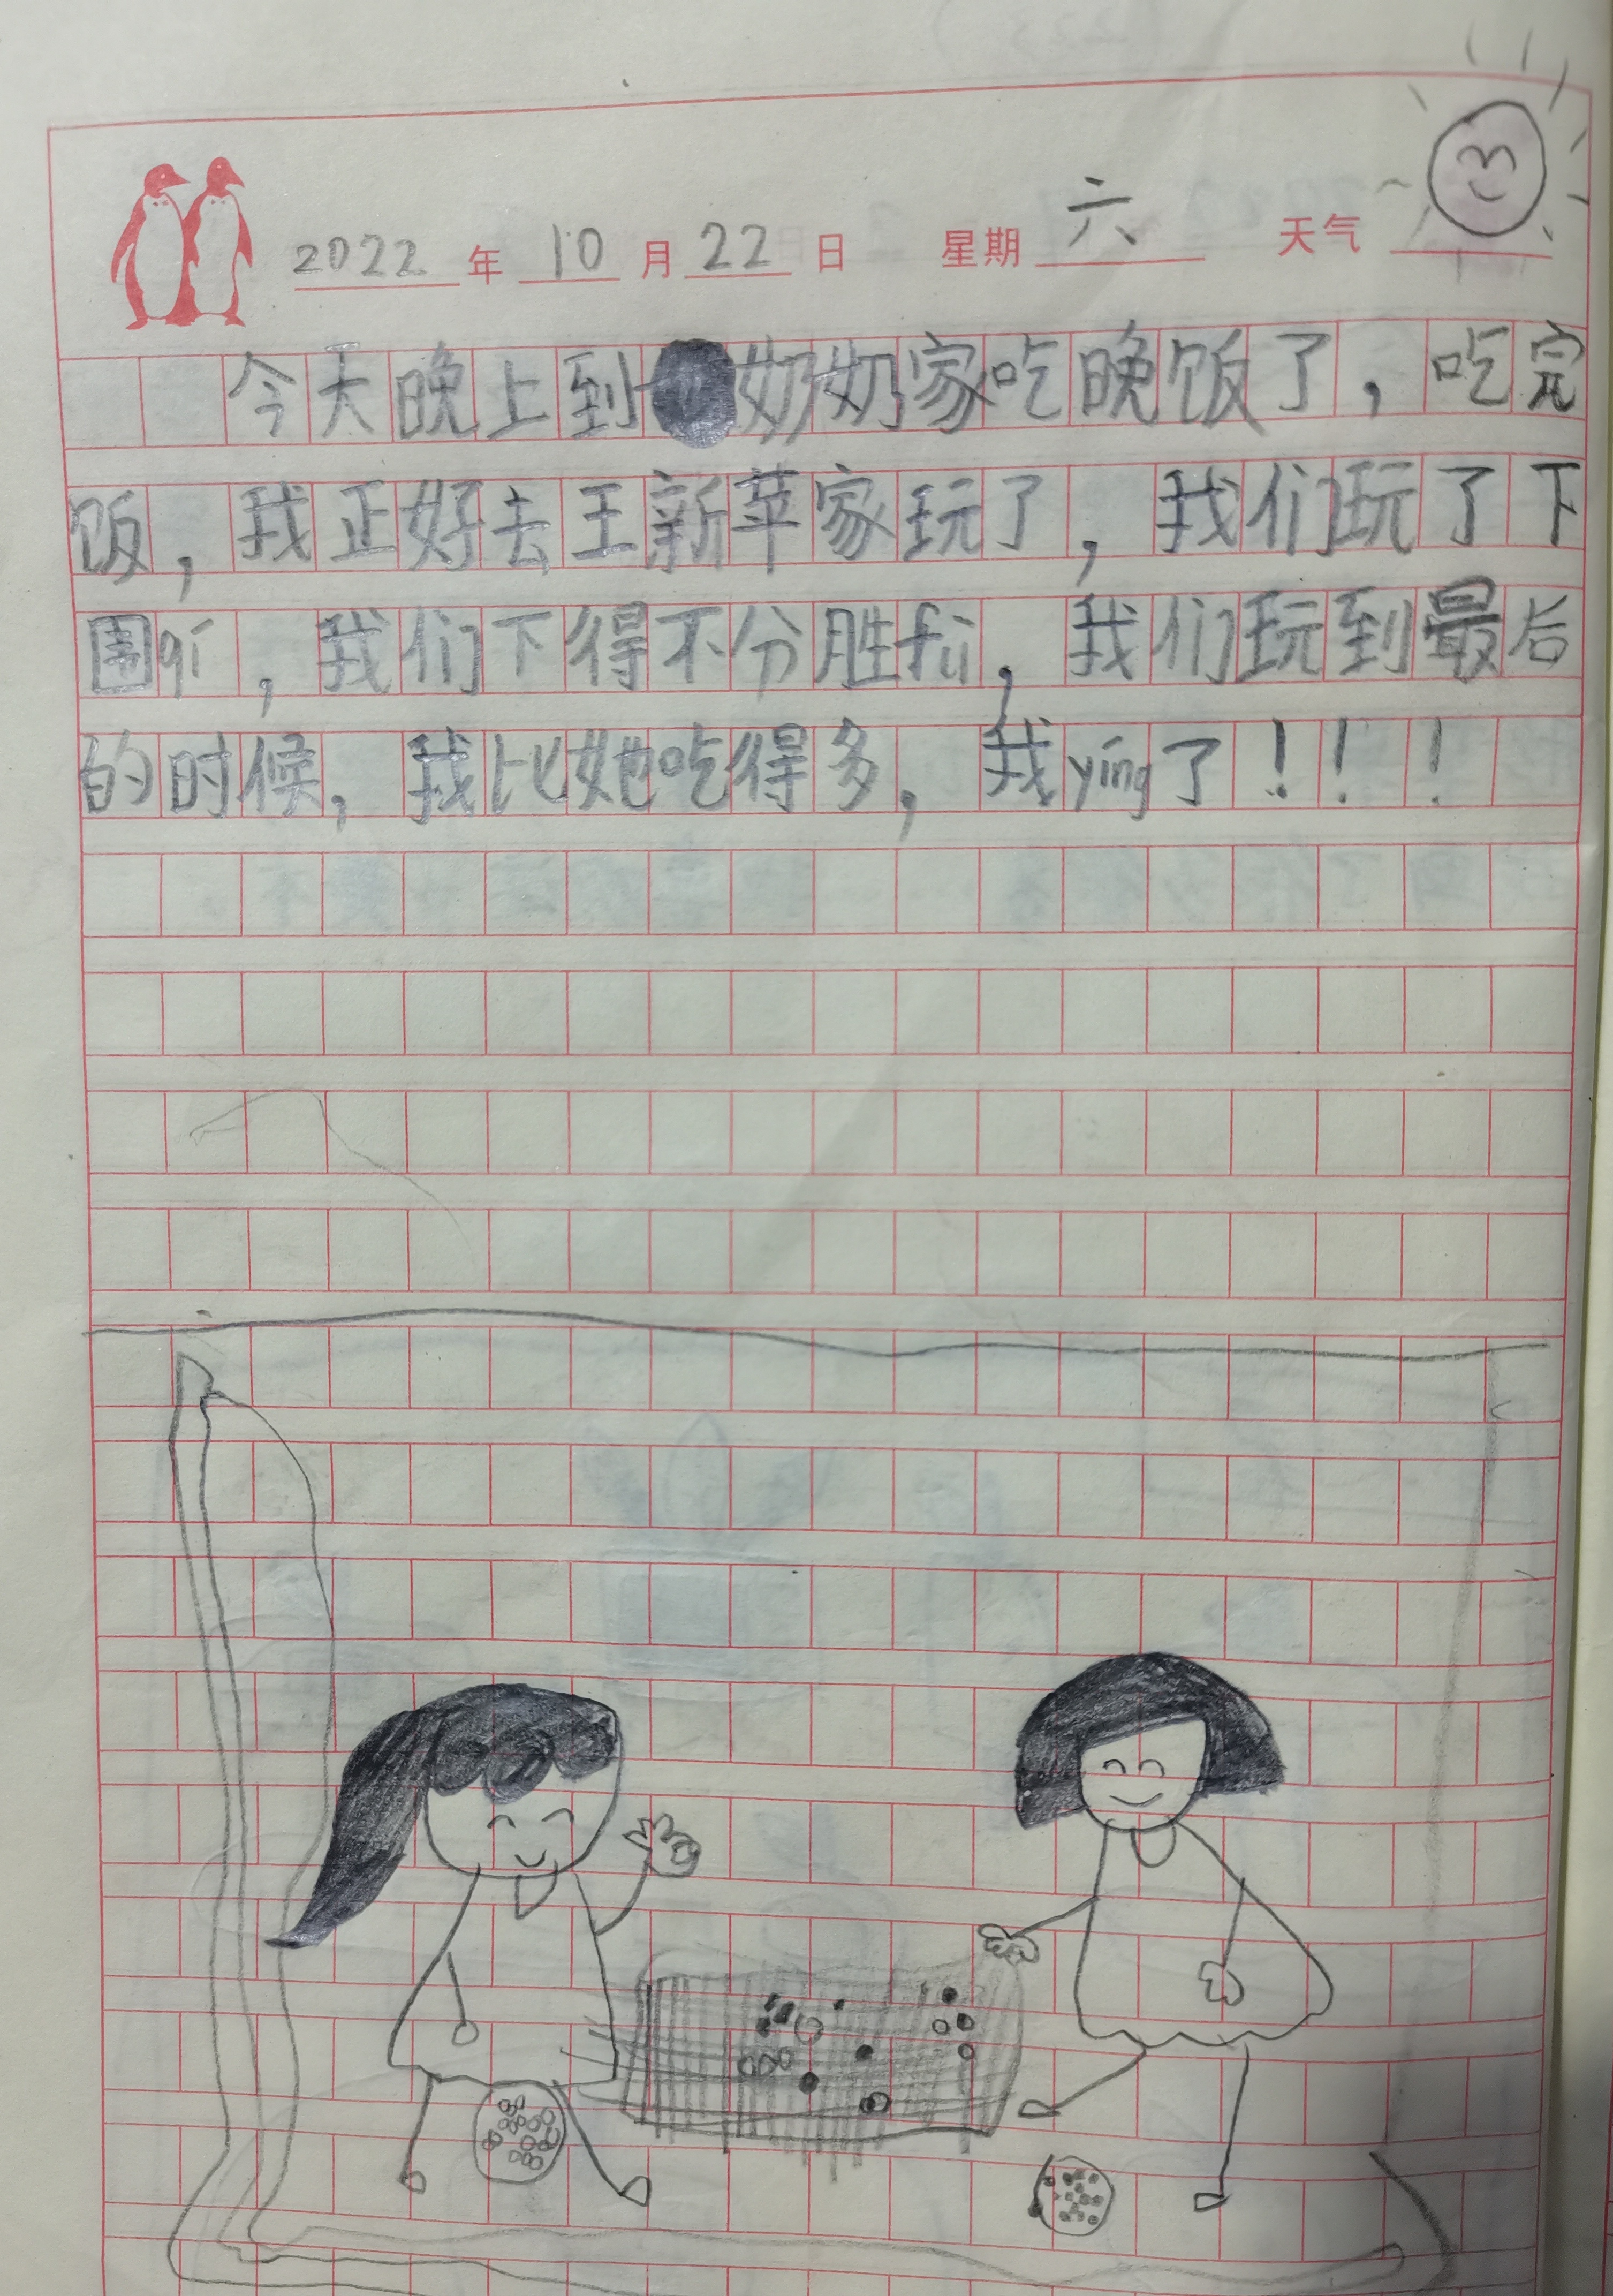 2022年10月22日 星期六 天气
今天晚上到奶奶家吃晚饭了，吃完
饭，我正好去王新苹家玩了，我们玩了下
围qí，我们下得不分胜fù，我们玩到最后
的时候，我比她吃得多，我yíng了！！！